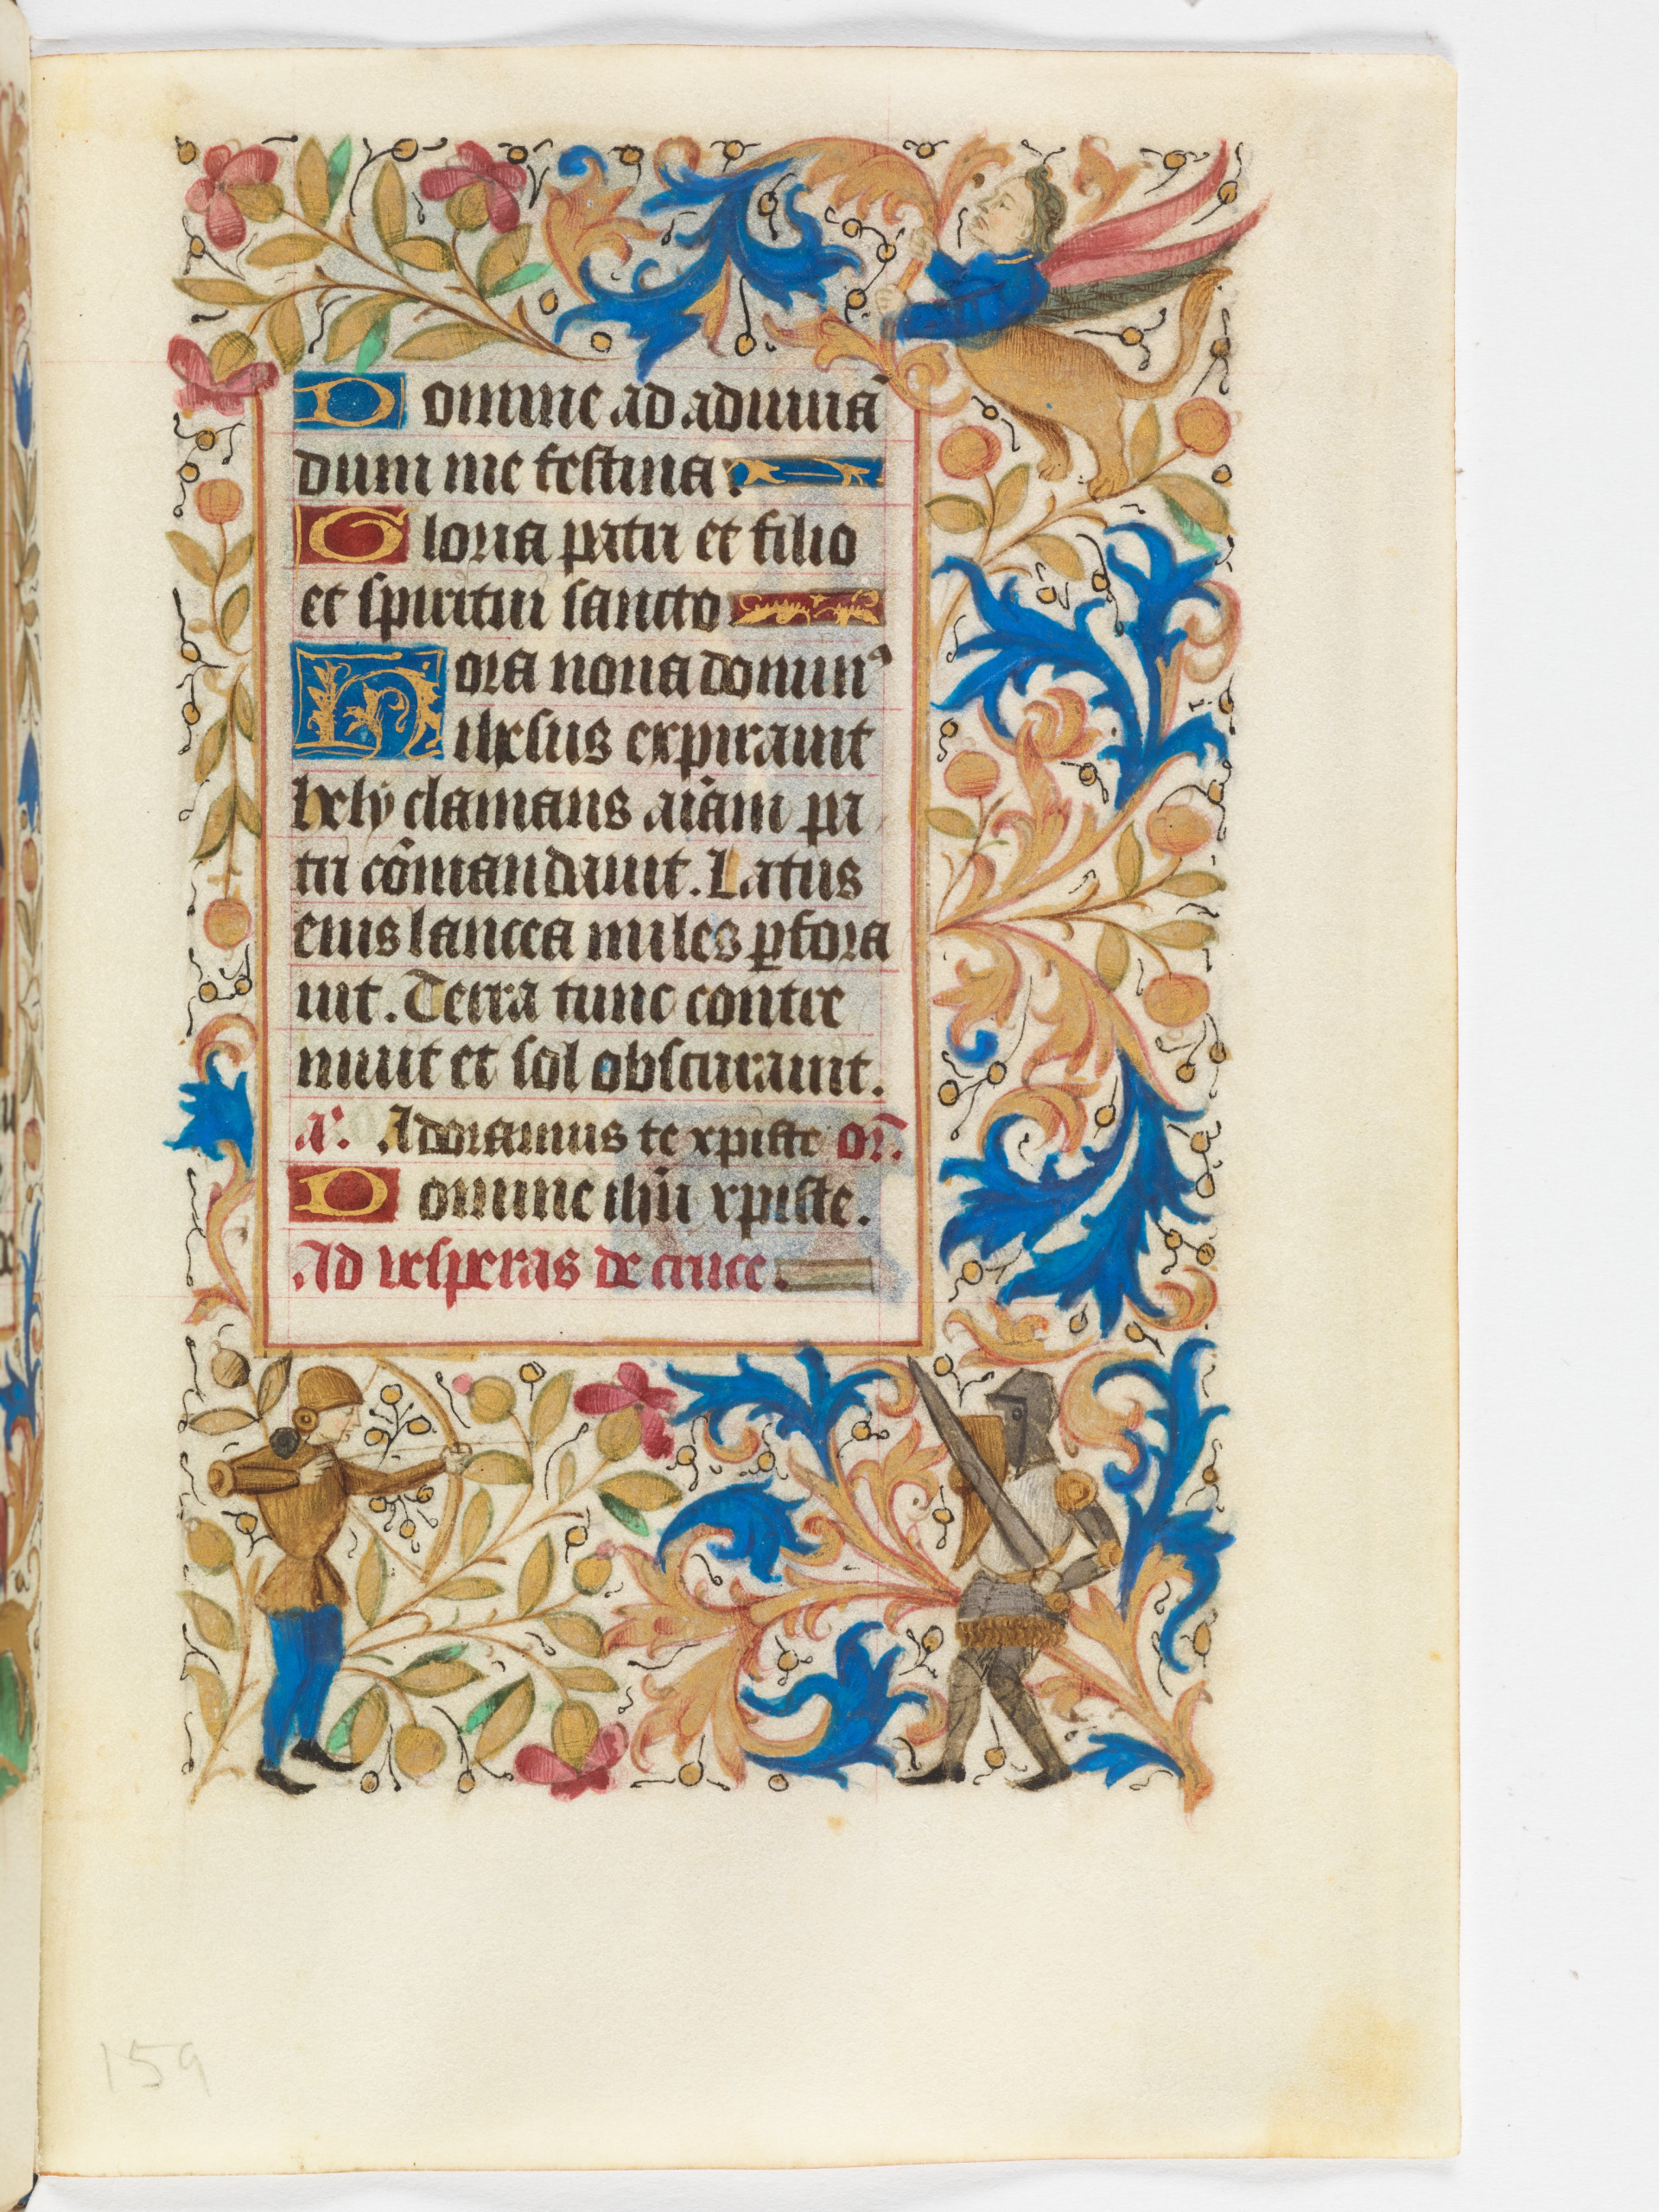 Domine ad adiuuã
dum me festina.
Gloria patri et filio
et spiritui sancto
Hora nona domin⁹
ihesus expirauit
hely clamans aīam pa
tri cõmandauit. Latus
eius lancea miles ꝑfora
uit. Terra tunc contre
muit et sol obscurauit.
a᷑. Adoramus te xpiste or̃.
Domine ihũ xpiste.
Ad vesperas de cruce.
159